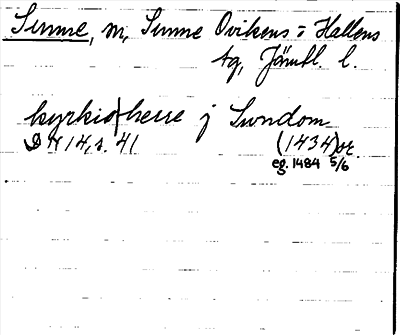 Sunne, m, Sunne Ovikens o Hallens
tg, Jämtl. l.
kyrkio|herre j Swndom
DN 14, s. 41 (1434) or.
eg. 1484 5/6